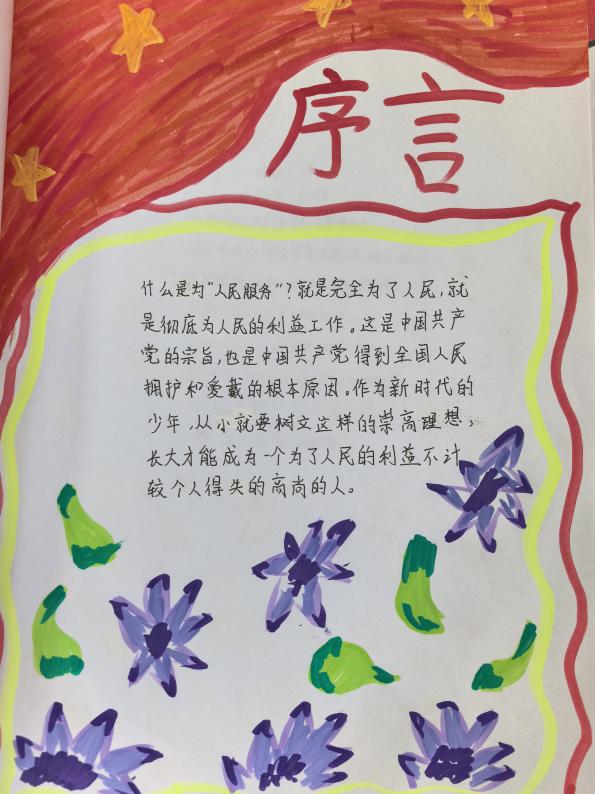 序言
什么是为“人民服务”？就是完全为了人民，就
是彻底为人民的利益工作。这是中国共产
党的宗旨，也是中国共产党得到全国人民
拥护和爱戴的根本原因。作为新时代的
少年，从小就要树文这样的崇高理想，
长大才能成为一个为了人民的利益不计
较个人得失的高尚的人。